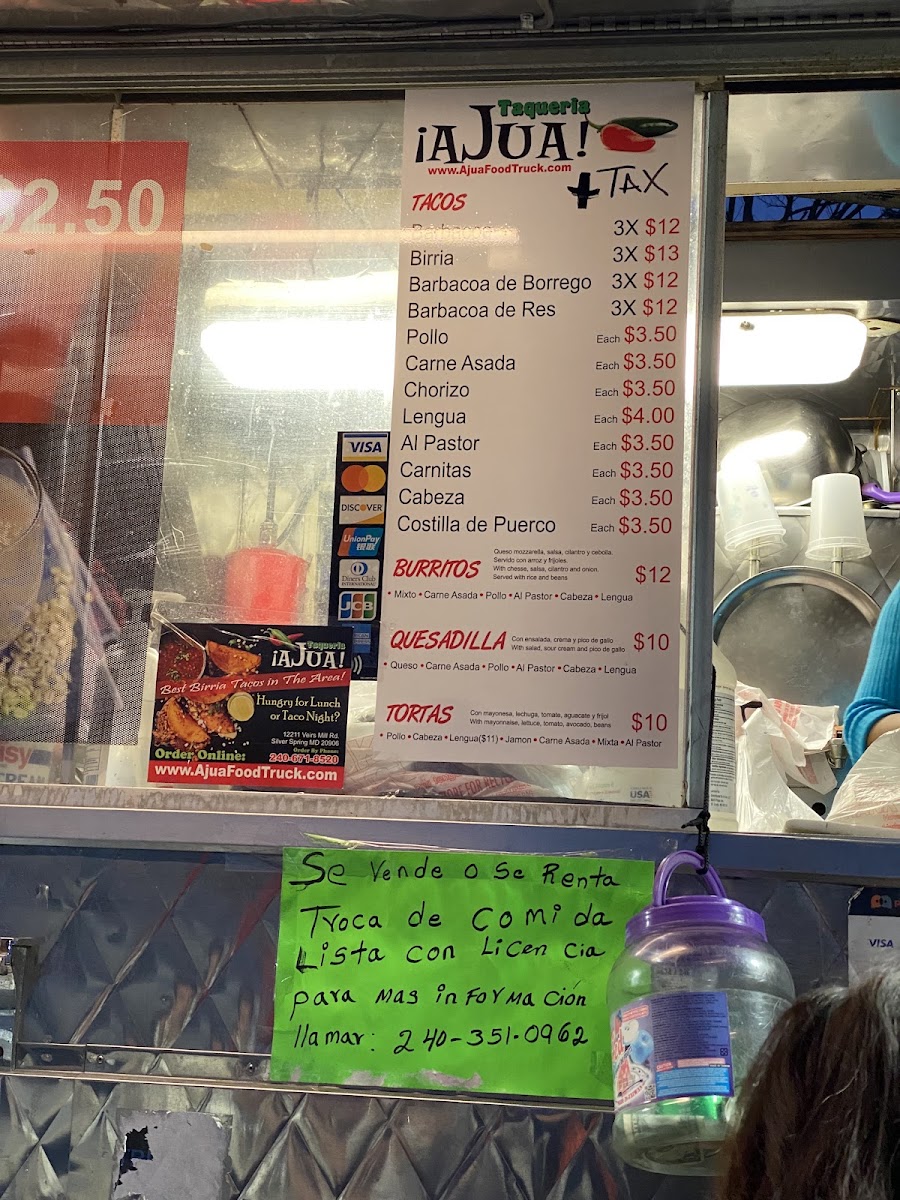 $2.50
Taqueria
¡AJUA!
www.AjuaFoodTruck.com
+ TAX
TACOS
3X $12
Birria 3X $13
Barbacoa de Borrego 3X $12
Barbacoa de Res 3X $12
Pollo Each $3.50
Carne Asada Each $3.50
Chorizo Each $3.50
Lengua Each $4.00
Al Pastor Each $3.50
Carnitas Each $3.50
Cabeza Each $3.50
Costilla de Puerco Each $3.50
BURRITOS $12
Queso mozzarella, salsa, cilantro y cebolla.
Servido con arroz y frijoles.
With chesse, salsa, cilantro and onion.
Served with rice and beans
• Mixto • Carne Asada • Pollo • Al Pastor • Cabeza • Lengua
QUESADILLA $10
Con ensalada, crema y pico de gallo
With salad, sour cream and pico de gallo
• Queso • Carne Asada • Pollo • Al Pastor • Cabeza • Lengua
TORTAS $10
Con mayonesa, lechuga, tomate, aguacate y frijol
With mayonnaise, lettuce, tomato, avocado, beans
• Pollo • Cabeza • Lengua($11) • Jamon • Carne Asada • Mixta • Al Pastor
VISA
DISCOVER
UnionPay
银联
Diners Club
INTERNATIONAL
JCB
Taqueria
¡AJUA!
Best Birria Tacos in The Area!
Hungry for Lunch
or Taco Night?
12211 Veirs Mill Rd.
Silver Spring MD 20906
Order By Phone:
Order Online: 240-671-8520
www.AjuaFoodTruck.com
USA
Se Vende o Se Renta
Troca de Comida
Lista con Licencia
para mas información
llamar: 240-351-0962
VISA